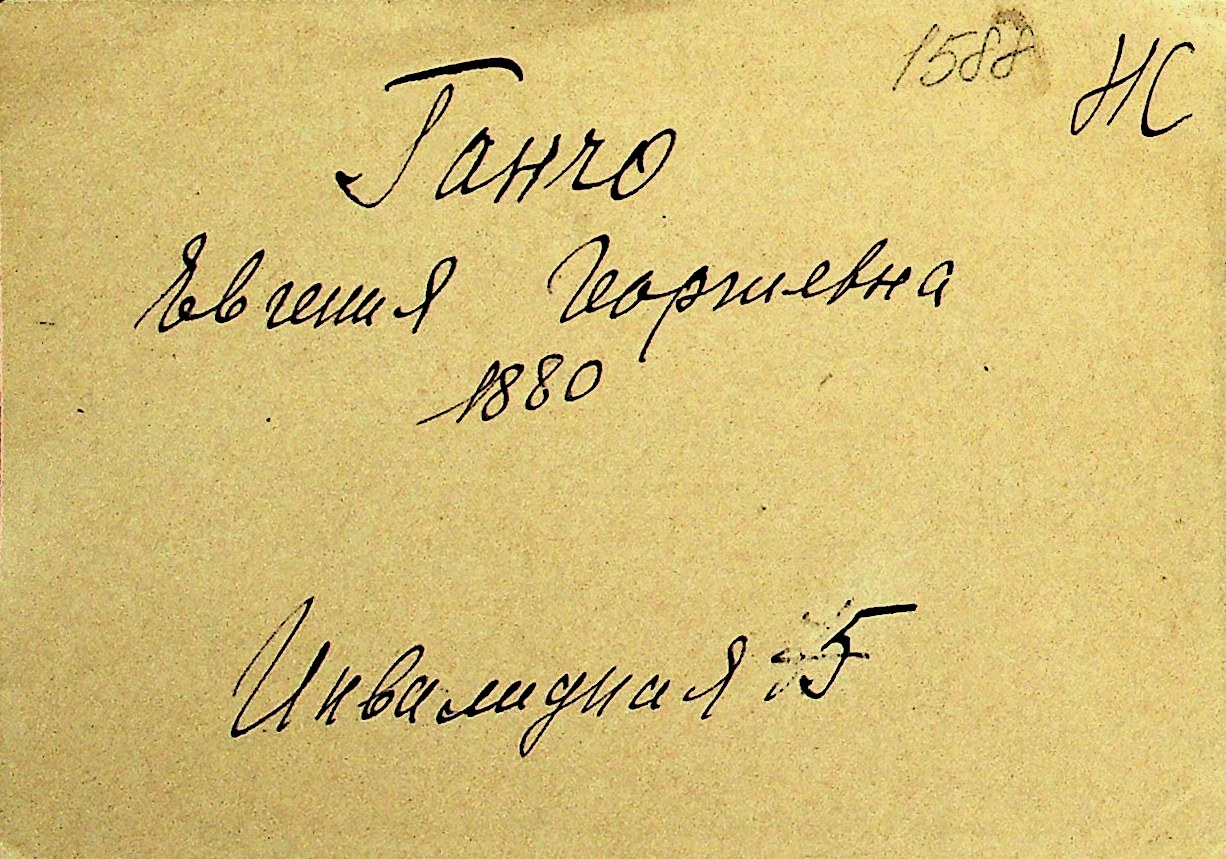 1588 Ж
Ганчо
Евгения Георгиевна
1880
Инвалидная 5